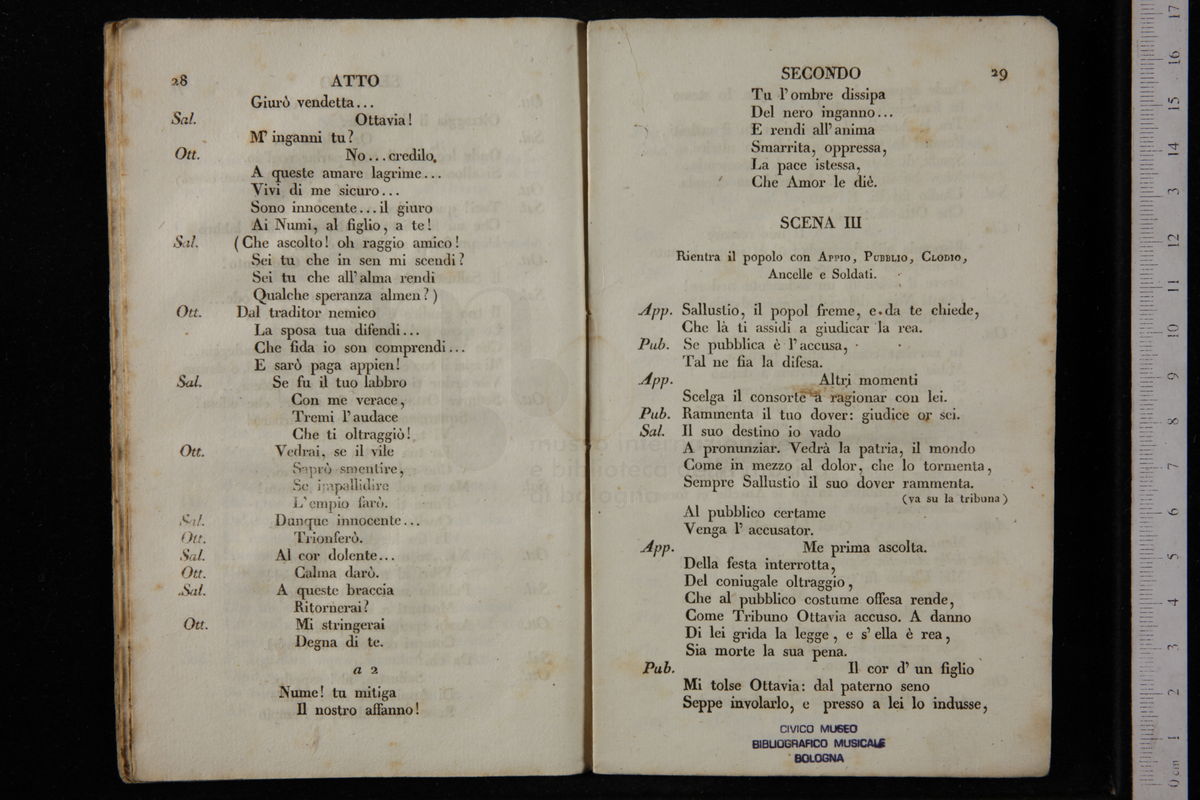 28 ATTO
Giurò vendetta...
Sal. Ottavia!
M' inganni tu?
Ott. No...credilo.
A queste amare lagrime...
Vivi di me sicuro...
Sono innocente...il giuro
Ai Numi, al figlio, a te!
Sal. (Che ascolto! oh raggio amico!
Sei tu che in sen mi scendi?
Sei tu che all'alma rendi
Qualche speranza almen?)
Ott. Dal traditor nemico
La sposa tua difendi...
Che fida io son comprendi...
E sarò paga appien!
Sal. Se fu il tuo labbro
Con me verace,
Tremi l'audace
Che ti oltraggiò!
Ott. Vedrai, se il vile
Saprò smentire,
Se impallidire
L'empio farò.
Sal. Dunque innocente...
Ott. Trionferò.
Sal. Al cor dolente...
Ott. Calma darò.
Sal. A queste braccia
Ritornerai?
Ott. Mi stringerai
Degna di te.
a 2
Nume! tu mitiga
Il nostro affanno!
SECONDO 29
Tu l'ombre dissipa
Del nero inganno...
E rendi all'anima
Smarrita, oppressa,
La pace istessa,
Che Amor le diè.
SCENA III
Rientra il popolo con Appio, Pubblio, Clodio,
Ancelle e Soldati.
App. Sallustio, il popol freme, e da te chiede,
Che là ti assidi a giudicar la rea.
Pub. Se pubblica è l'accusa,
Tal ne fia la difesa.
App. Altri momenti
Scelga il consorte a ragionar con lei.
Pub. Rammenta il tuo dover: giudice or sei.
Sal. Il suo destino io vado
A pronunziar. Vedrà la patria, il mondo
Come in mezzo al dolor, che lo tormenta,
Sempre Sallustio il suo dover rammenta.
(va su la tribuna)
Al pubblico certame
Venga l' accusator.
App. Me prima ascolta.
Della festa interrotta,
Del coniugale oltraggio,
Che al pubblico costume offesa rende,
Come Tribuno Ottavia accuso. A danno
Di lei grida la legge, e s' ella è rea,
Sia morte la sua pena.
Pub. Il cor d' un figlio
Mi tolse Ottavia: dal paterno seno
Seppe involarlo, e presso a lei lo indusse,
CIVICO MUSEO
BIBLIOGRAFICO MUSICALE
BOLOGNA